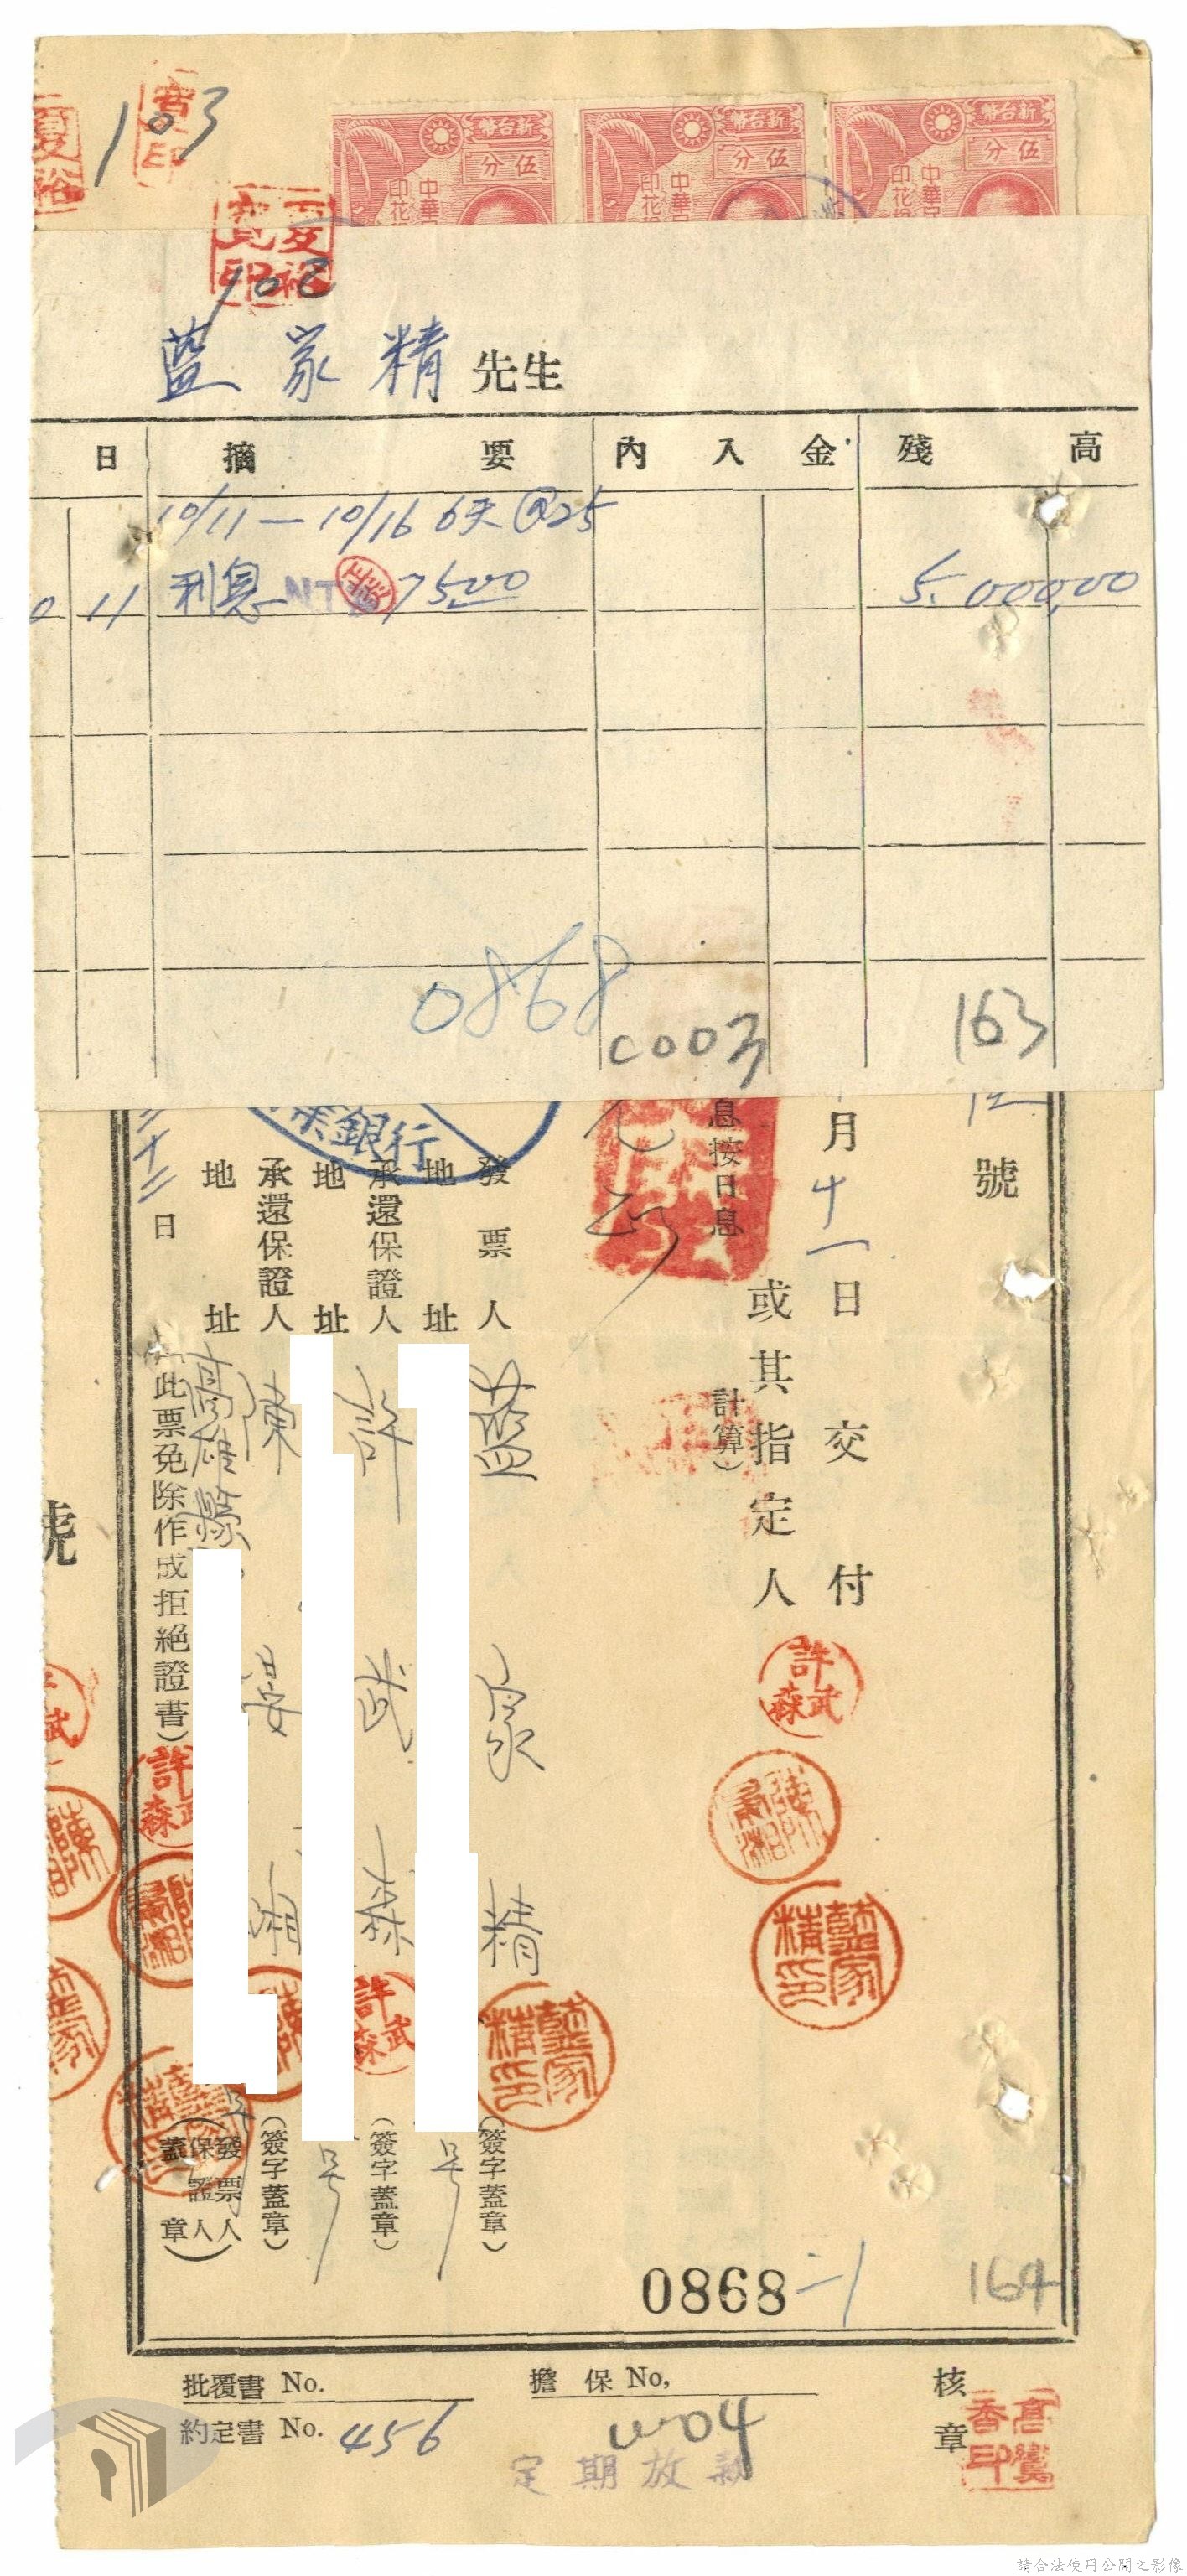 103
夏裕
寬印
新台幣 新台幣 新台幣
伍分 伍分 伍分
中華民 中華民 中華民
印花 印花 印花
夏裕寬印
102
藍家精 先生
日 摘要 內入金 殘高
10/11—10/16 6天 @25
11 利息 NT 75.00 5,000.00
0868
0003
163
號
月十一日交付
或其指定人
息按日息
計算)
業銀行
發票人 藍家精 (簽字蓋章)
地址 号
承還保證人 許武森 (簽字蓋章)
地址 号
承還保證人 陳 湘 (簽字蓋章)
地址 高雄縣
日
(此票免除作成拒絕證書)
(發票人保證人蓋章)
號
許武森
藍家精印
許武森
藍家精印
許武森
許武森
藍家精印
0868-1
164
批覆書 No.
擔保 No,
約定書 No. 456
定期放款
核章
請合法使用公開之影像